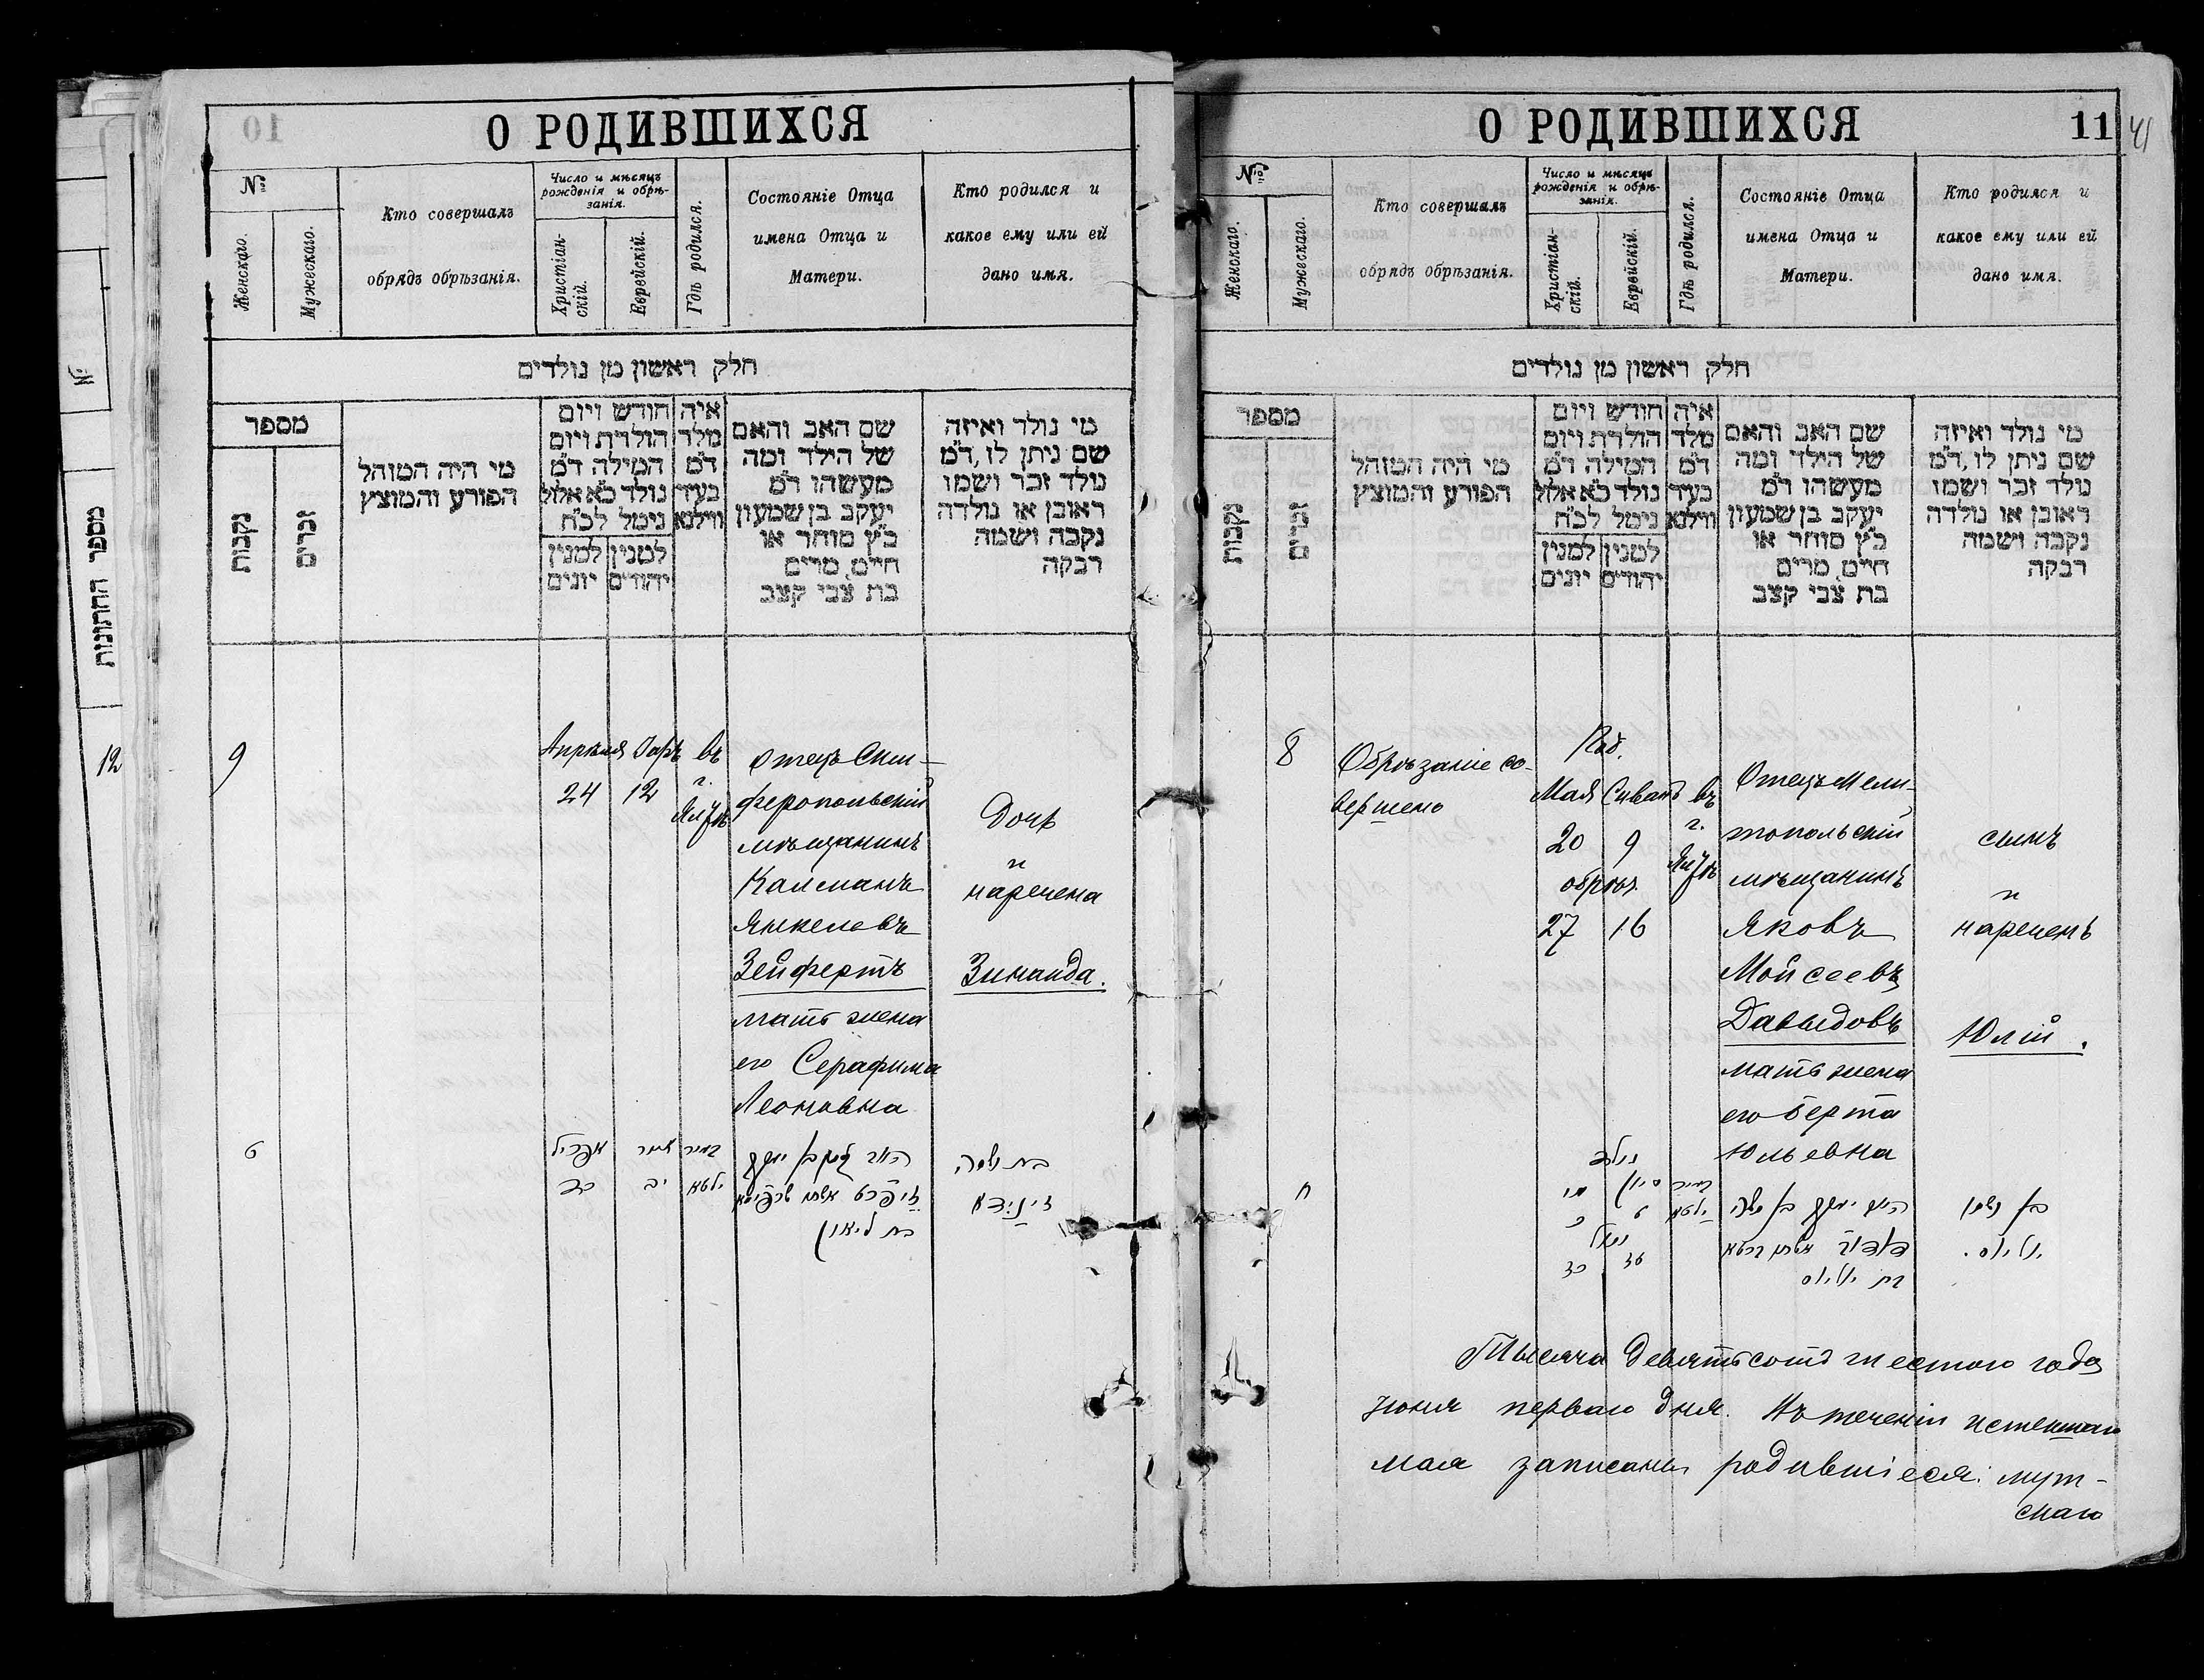 О РОДИВШИХСЯ
№
Женскаго.
Мужескаго.
Кто совершалъ
обрядъ обрѣзанія.
Число и мѣсяцъ
рожденія и обрѣ-
занія.
Христіан-
скій.
Еврейскій.
Гдѣ родился.
Состояніе Отца
имена Отца и
Матери.
Кто родился и
какое ему или ей
дано имя.
חלק ראשון מן נולדים
מספר
נקבות
זכרים
מי היה המוהל
הפורע והמוצץ
חודש ויום
הולדת ויום
המילה ד״מ
נולד כ״א אלול
נימל לכ״ח
למנין יהודים
למנין יונים
איה
מלד
ד״מ
בעיר
ווילנא
שם האב והאם
של הילד ומה
מעשהו ד״מ
יעקב בן שמעון
כ״ץ סוחר או
חיים מרים
בת צבי קצב
מי נולד ואיזה
שם ניתן לו, ד״מ
נולד זכר ושמו
ראובן או נולדה
נקבה ושמה
רבקה
9
Апрѣля
24
12
въ
г.
Отецъ Сим-
феропольскій
мѣщанинъ
Калманъ
Янкелевъ
Зейфертъ
мать жена
его Серафима
Леоновна
Дочь
и
наречена
Зинаида.
אפריל
כד
יב
בת ליאון
О РОДИВШИХСЯ
11
41
№
Женскаго.
Мужескаго.
Кто совершалъ
обрядъ обрѣзанія.
Число и мѣсяцъ
рожденія и обрѣ-
занія.
Христіан-
скій.
Еврейскій.
Гдѣ родился.
Состояніе Отца
имена Отца и
Матери.
Кто родился и
какое ему или ей
дано имя.
חלק ראשון מן נולדים
מספר
נקבות
זכרים
מי היה המוהל
הפורע והמוצץ
חודש ויום
הולדת ויום
המילה ד״מ
נולד כ״א אלול
נימל לכ״ח
למנין יהודים
למנין יונים
איה
מלד
ד״מ
בעיר
ווילנא
שם האב והאם
של הילד ומה
מעשהו ד״מ
יעקב בן שמעון
כ״ץ סוחר או
חיים מרים
בת צבי קצב
מי נולד ואיזה
שם ניתן לו, ד״מ
נולד זכר ושמו
ראובן או נולדה
נקבה ושמה
רבקה
8
Обрѣзаніе со-
вершено
Мая Сиванъ
20 9
обрѣз.
27 16
въ
г.
Отецъ Мели-
топольскій
мѣщанинъ
Яковъ
Мойсеевъ
Давыдовъ
мать жена
его Берта
Юльевна
сынъ
и
нареченъ
Юлій.
ח
נולד
Тысяча девятьсотъ шестого года
іюня перваго дня. Въ теченіи истекшаго
мая записаны родившіеся: муж-
скаго
12
מספר החתונות
№